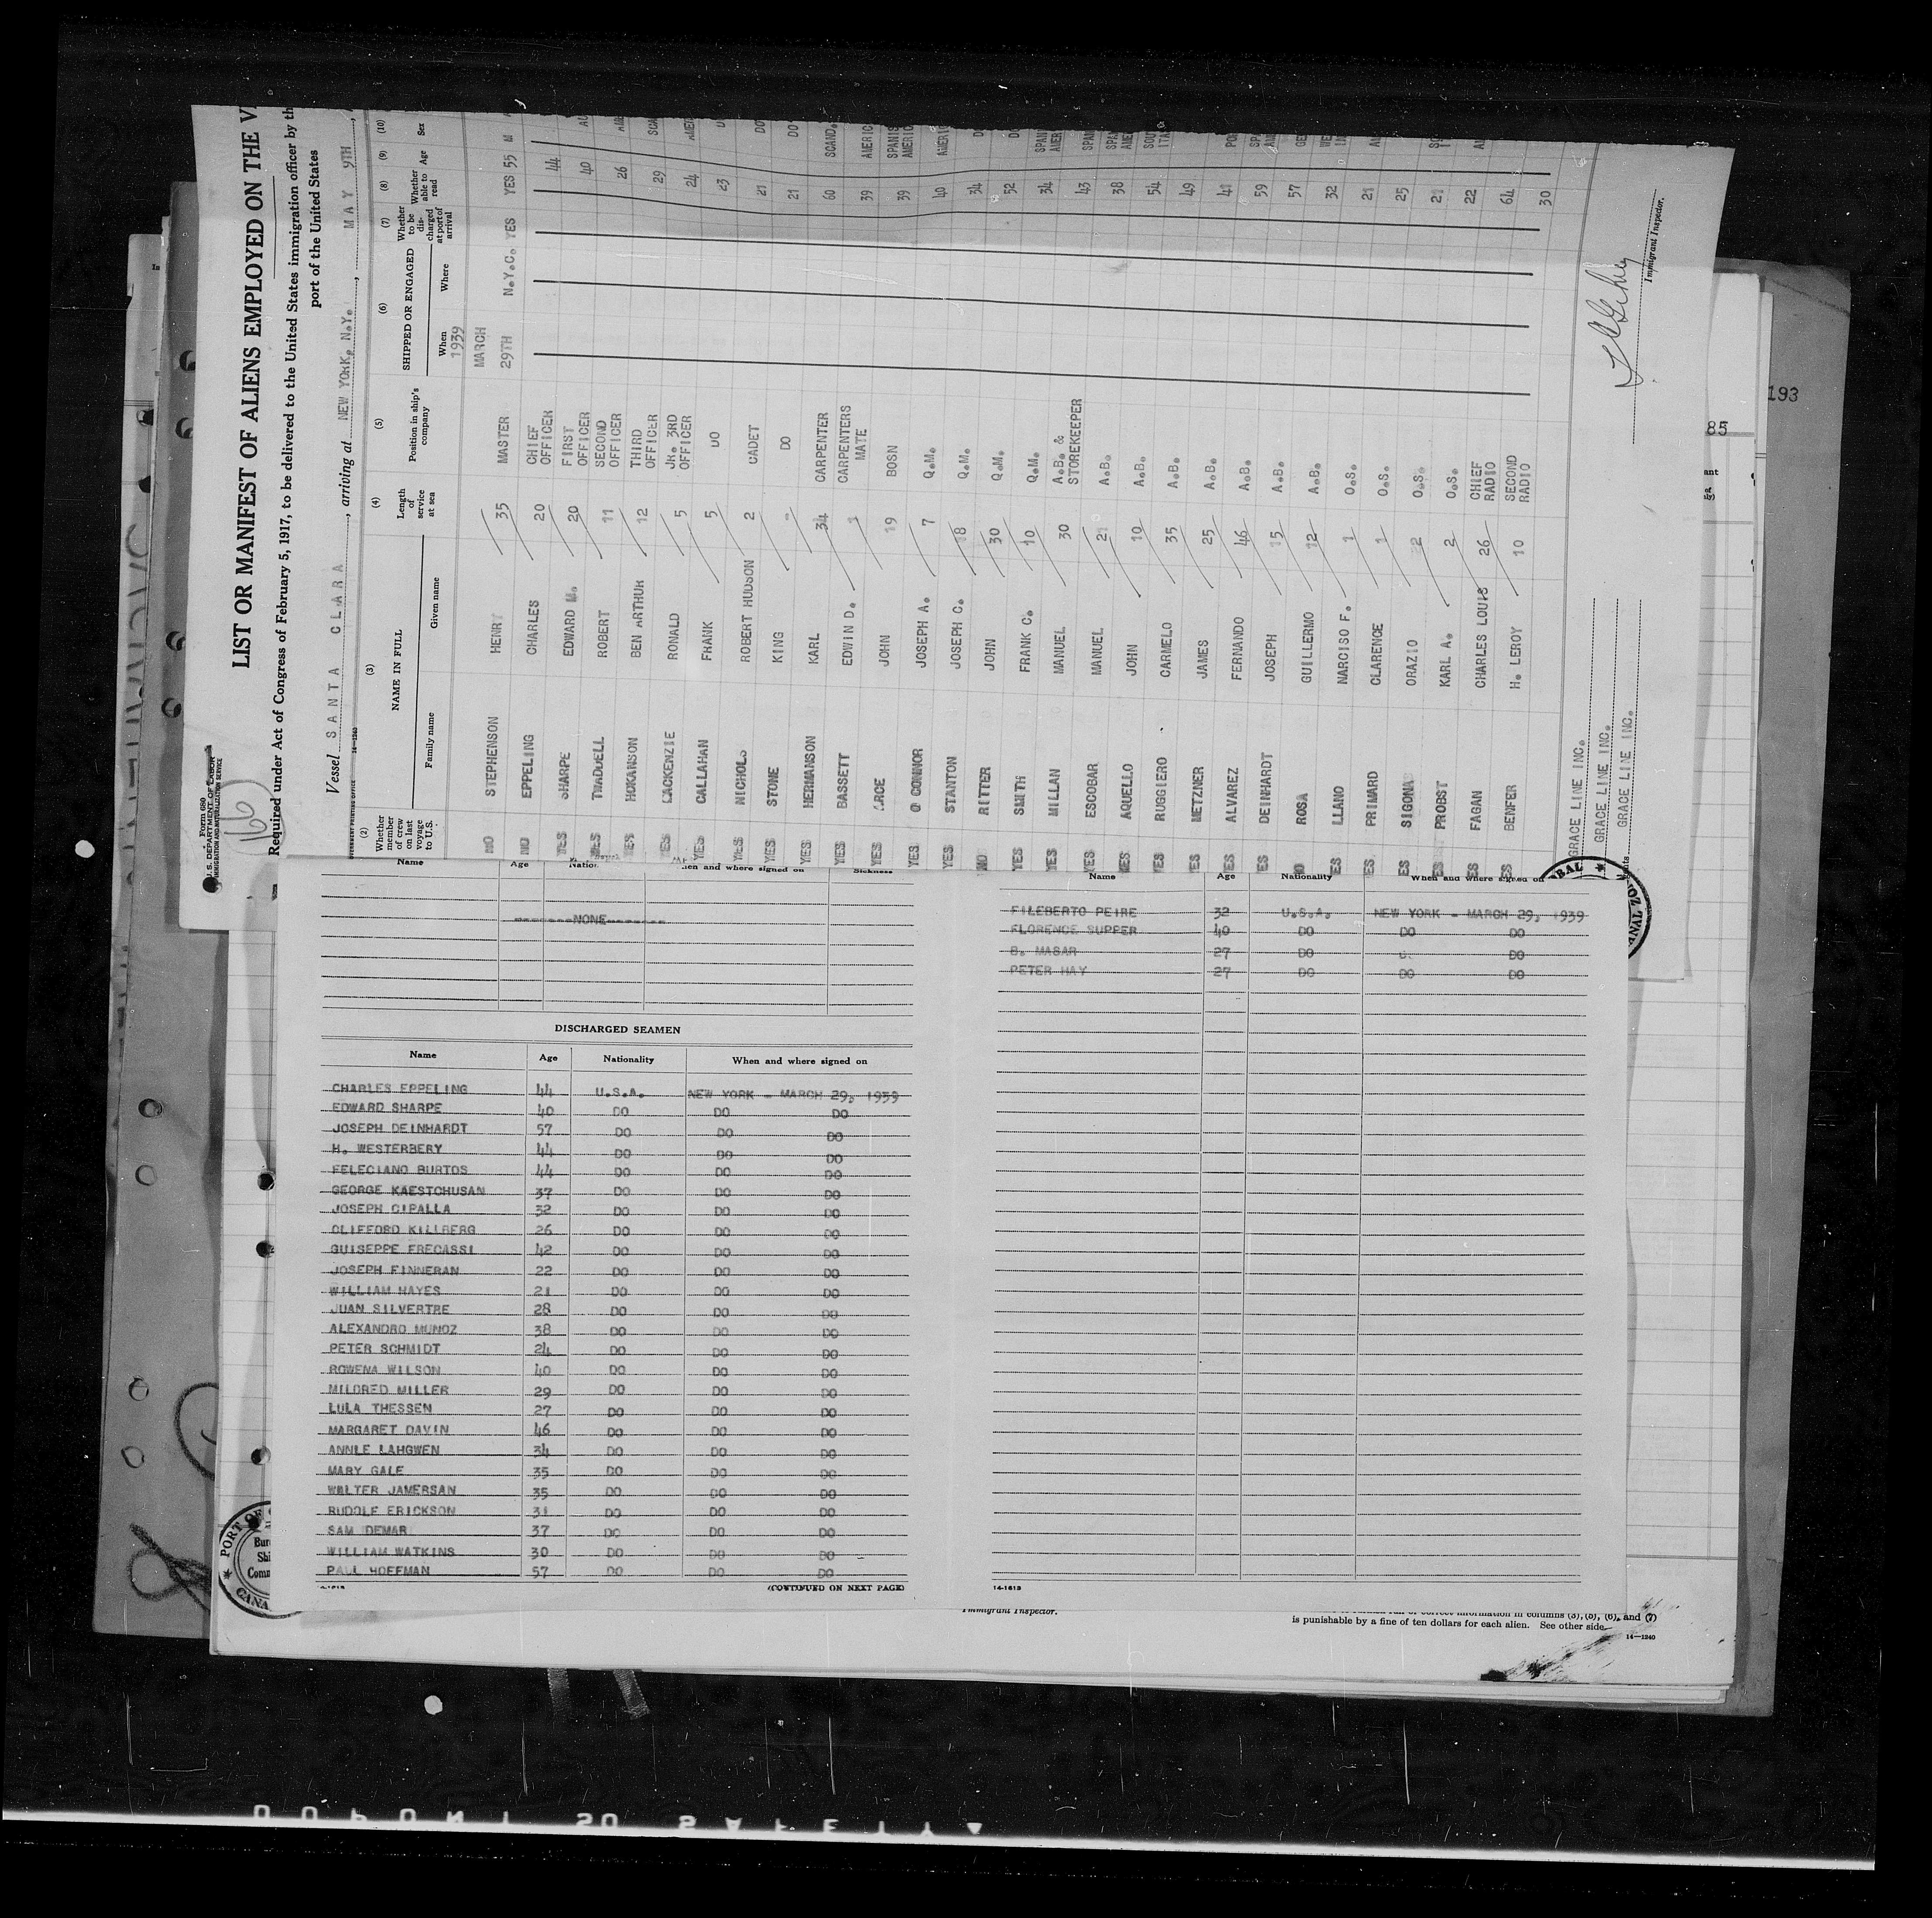 Form 680
U. S. DEPARTMENT OF LABOR
IMMIGRATION AND NATURALIZATION SERVICE
LIST OR MANIFEST OF ALIENS EMPLOYED ON THE
Required under Act of Congress of February 5, 1917, to be delivered to the United States immigration officer by th
port of the United States
Vessel SANTA CLARA, arriving at NEW YORK, N.Y., MAY 9TH,
14-1240
(2) (3) (4) (5) (6) (7) (8) (9) (10)
Whether member of crew on last voyage to U.S. NAME IN FULL Family name Given name Length of service at sea Position in ship's company SHIPPED OR ENGAGED When Where Whether to be discharged at port of arrival Whether able to read Age Sex
1939
MARCH
NO STEPHENSON HENRY 35 MASTER 29TH N.Y.C. YES YES 55 M
NO EPPELING CHARLES 20 CHIEF OFFICER 44
YES SHARPE EDWARD M. 20 FIRST OFFICER 40
YES TWADDELL ROBERT 11 SECOND OFFICER 26
YES HOKANSON BEN ARTHUR 12 THIRD OFFICER 29
YES LACKENZIE RONALD 5 JR. 3RD OFFICER 24
YES CALLAHAN FRANK 5 DO 23
YES NICHOLS ROBERT HUDSON 2 CADET 21
YES STONE KING - DO 21
YES HERMANSON KARL 34 CARPENTER 60 SCAND.
YES BASSETT EDWIN D. 1 CARPENTERS MATE 39
YES ARCE JOHN 19 BOSN 39
YES O CONNOR JOSEPH A. 7 Q.M. 40
YES STANTON JOSEPH C. 18 Q.M. 34
NO RITTER JOHN 30 Q.M. 52
YES SMITH FRANK C. 10 Q.M. 34
YES MILLAN MANUEL 30 A.B. & STOREKEEPER 43
YES ESCOBAR MANUEL 21 A.B. 38
YES AQUELLO JOHN 10 A.B. 54
YES RUGGIERO CARMELO 35 A.B. 49
YES METZNER JAMES 25 A.B. 41
YES ALVAREZ FERNANDO 46 A.B. 59
ES DEINHARDT JOSEPH 15 A.B. 57
ROSA GUILLERMO 12 A.B. 32
ES LLANO NARCISO F. 1 O.S. 21
ES PRIMARD CLARENCE 1 O.S. 25
ES SIGONA ORAZIO O.S. 21
ES PROBST KARL A. 2 O.S. 22
ES FAGAN CHARLES LOUIS 26 CHIEF RADIO 64
ES BENFER H. LEROY 10 SECOND RADIO 30
GRACE LINE INC.
GRACE LINE INC.
GRACE LINE INC.
Immigrant Inspector.
193
85
Name Age When and where signed on Sickness
NONE
DISCHARGED SEAMEN
Name Age Nationality When and where signed on
CHARLES EPPELING 44 U.S.A. NEW YORK - MARCH 29, 1939
EDWARD SHARPE 40 DO DO DO
JOSEPH DEINHARDT 57 DO DO DO
H. WESTERBERY 44 DO DO DO
FELECIANO BURTOS 44 DO DO DO
GEORGE KAESTCHUSAN 37 DO DO DO
JOSEPH CIPALLA 32 DO DO DO
CLIFFORD KILLBERG 26 DO DO DO
GUISEPPE FRECASSI 42 DO DO DO
JOSEPH FINNERAN 22 DO DO DO
WILLIAM HAYES 21 DO DO DO
JUAN SILVERTRE 28 DO DO DO
ALEXANDRO MUNOZ 38 DO DO DO
PETER SCHMIDT 24 DO DO DO
ROWENA WILSON 40 DO DO DO
MILDRED MILLER 29 DO DO DO
LULA THESSEN 27 DO DO DO
MARGARET DAVIN 46 DO DO DO
ANNLE LAHGWEN 34 DO DO DO
MARY GALE 35 DO DO DO
WALTER JAMERSAN 35 DO DO DO
RUDOLF ERICKSON 31 DO DO DO
SAM DEMAR 37 DO DO DO
WILLIAM WATKINS 30 DO DO DO
PAUL HOFFMAN 57 DO DO DO
(CONTINUED ON NEXT PAGE)
Name Age Nationality When and where signed on
FILEBERTO PEIRE 32 U.S.A. NEW YORK - MARCH 29, 1939
FLORENCE SUPPER 40 DO DO DO
B. MASAR 27 DO DO
PETER HAY 27 DO DO DO
14-1613
Immigrant Inspector.
correct information in columns (3), (5), (6), and (7)
is punishable by a fine of ten dollars for each alien. See other side.
14-1240
PORT OF
CANA
ANAL ZO
DUPONT SAFETY